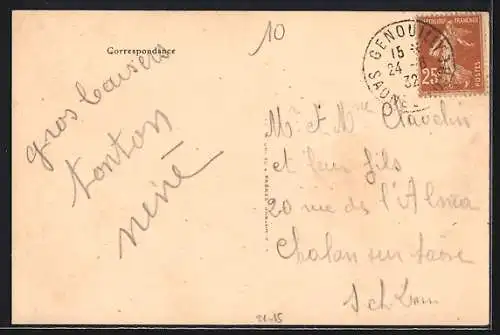 Correspondance
10
gros baisers
tonton
néné
GENOUILLY
15
24
32
SAONE
REPUBLIQUE FRANCAISE
25c
POSTES
Mr et Mme Clavelin
et leur fils
20 rue de l'Alma
Chalon sur Saône
S et Loire
21-15